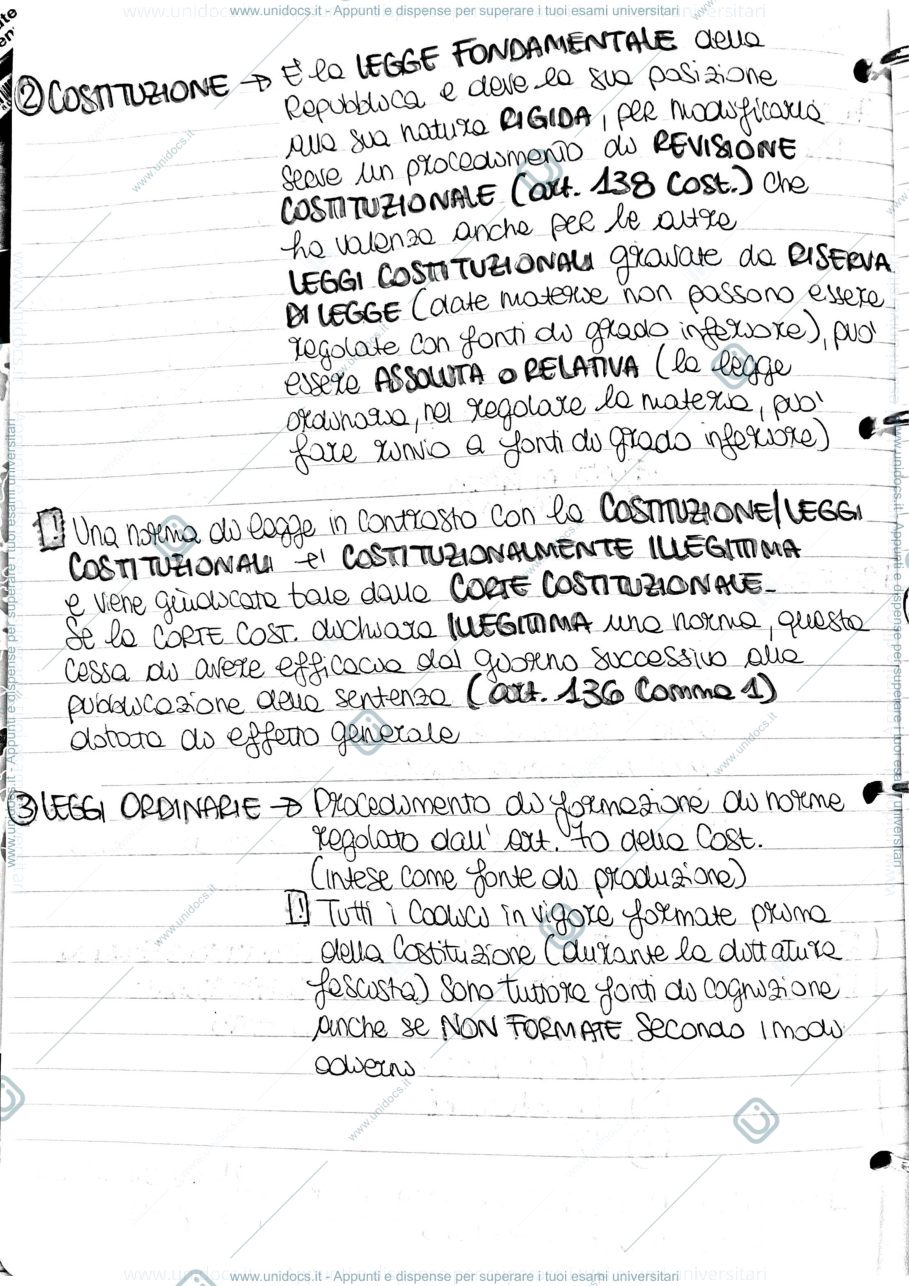 www.unidocs.it - Appunti e dispense per superare i tuoi esami universitari
② COSTITUZIONE → È la LEGGE FONDAMENTALE della
Repubblica e deve la sua posizione
alla sua natura RIGIDA, per modificarla
serve un procedimento di REVISIONE
COSTITUZIONALE (art. 138 Cost.) che
ha valenza anche per le altre
LEGGI COSTITUZIONALI gravate da RISERVA
DI LEGGE (date materie non possono essere
regolate con fonti di grado inferiore), puo'
essere ASSOLUTA o RELATIVA (la legge
ordinaria, nel regolare la materia, puo'
fare rinvio a fonti di grado inferiore)
! Una norma di legge in contrasto con la COSTITUZIONE/LEGGI
COSTITUZIONALI e' COSTITUZIONALMENTE ILLEGITTIMA
e viene giudicata tale dalla CORTE COSTITUZIONALE.
Se la CORTE COST. dichiara ILLEGITTIMA una norma, questa
cessa di avere efficacia dal giorno successivo alla
pubblicazione della sentenza (art. 136 comma 1)
dotata di effetto generale
③ LEGGI ORDINARIE → Procedimento di formazione di norme
regolato dall' art. 70 della Cost.
(intese come fonte di produzione)
! Tutti i Codici in vigore formate prima
della Costituzione (durante la dittatura
fascista) sono tuttora fonti di cognizione
anche se NON FORMATE secondo i modi
odierni
www.unidocs.it - Appunti e dispense per superare i tuoi esami universitari